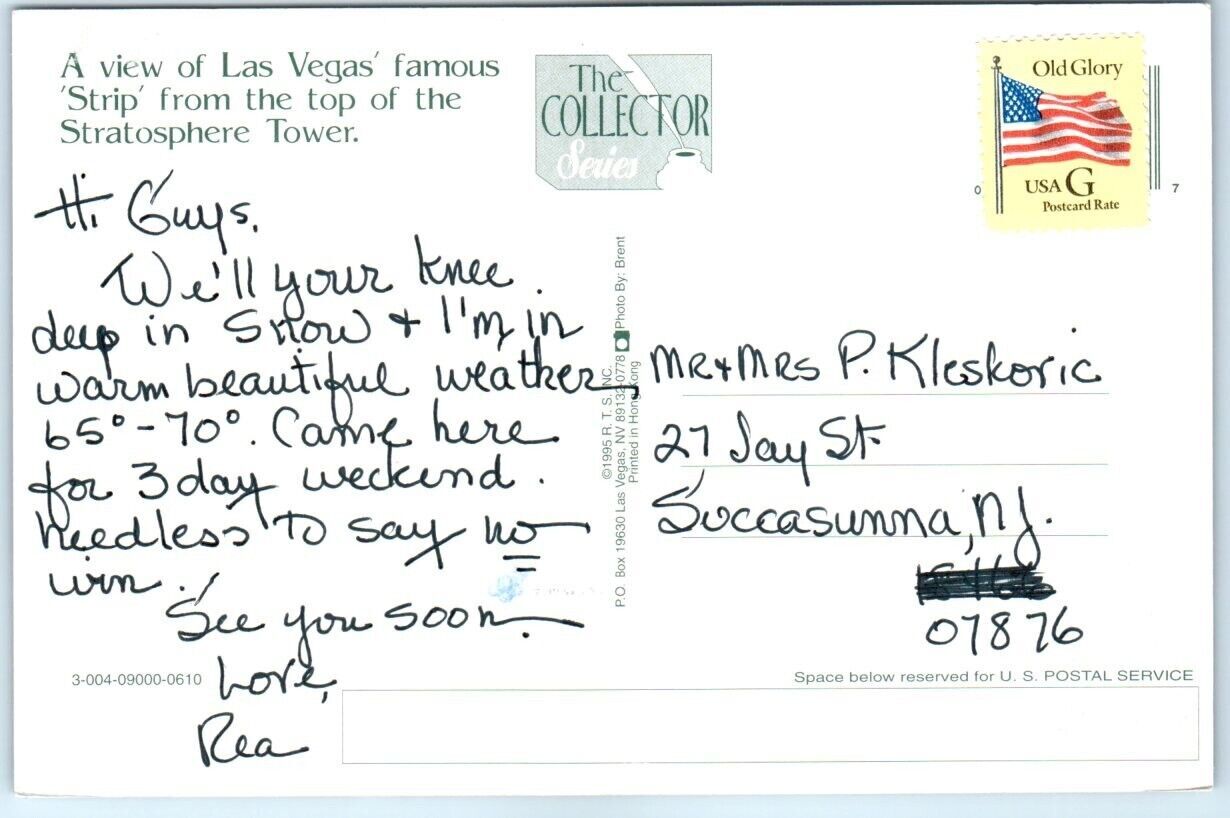 A view of Las Vegas' famous
'Strip' from the top of the
Stratosphere Tower.
The
COLLECTOR
Series
Old Glory
USA G
Postcard Rate
0 7
Hi Guys,
We'll your knee
deep in snow + I'm in
warm beautiful weather,
65°-70°. Came here
for 3 day weekend.
Needless to say no
win.
See you soon.
Love,
Rea
P.O. Box 19630 Las Vegas, NV 89132-0778 Photo By: Brent
©1995 R. T. S. INC.
Printed in Hong Kong
Mr + Mrs P. Kleskoric
27 Jay St
Succasunna, NJ.
07876
3-004-09000-0610
Space below reserved for U. S. POSTAL SERVICE